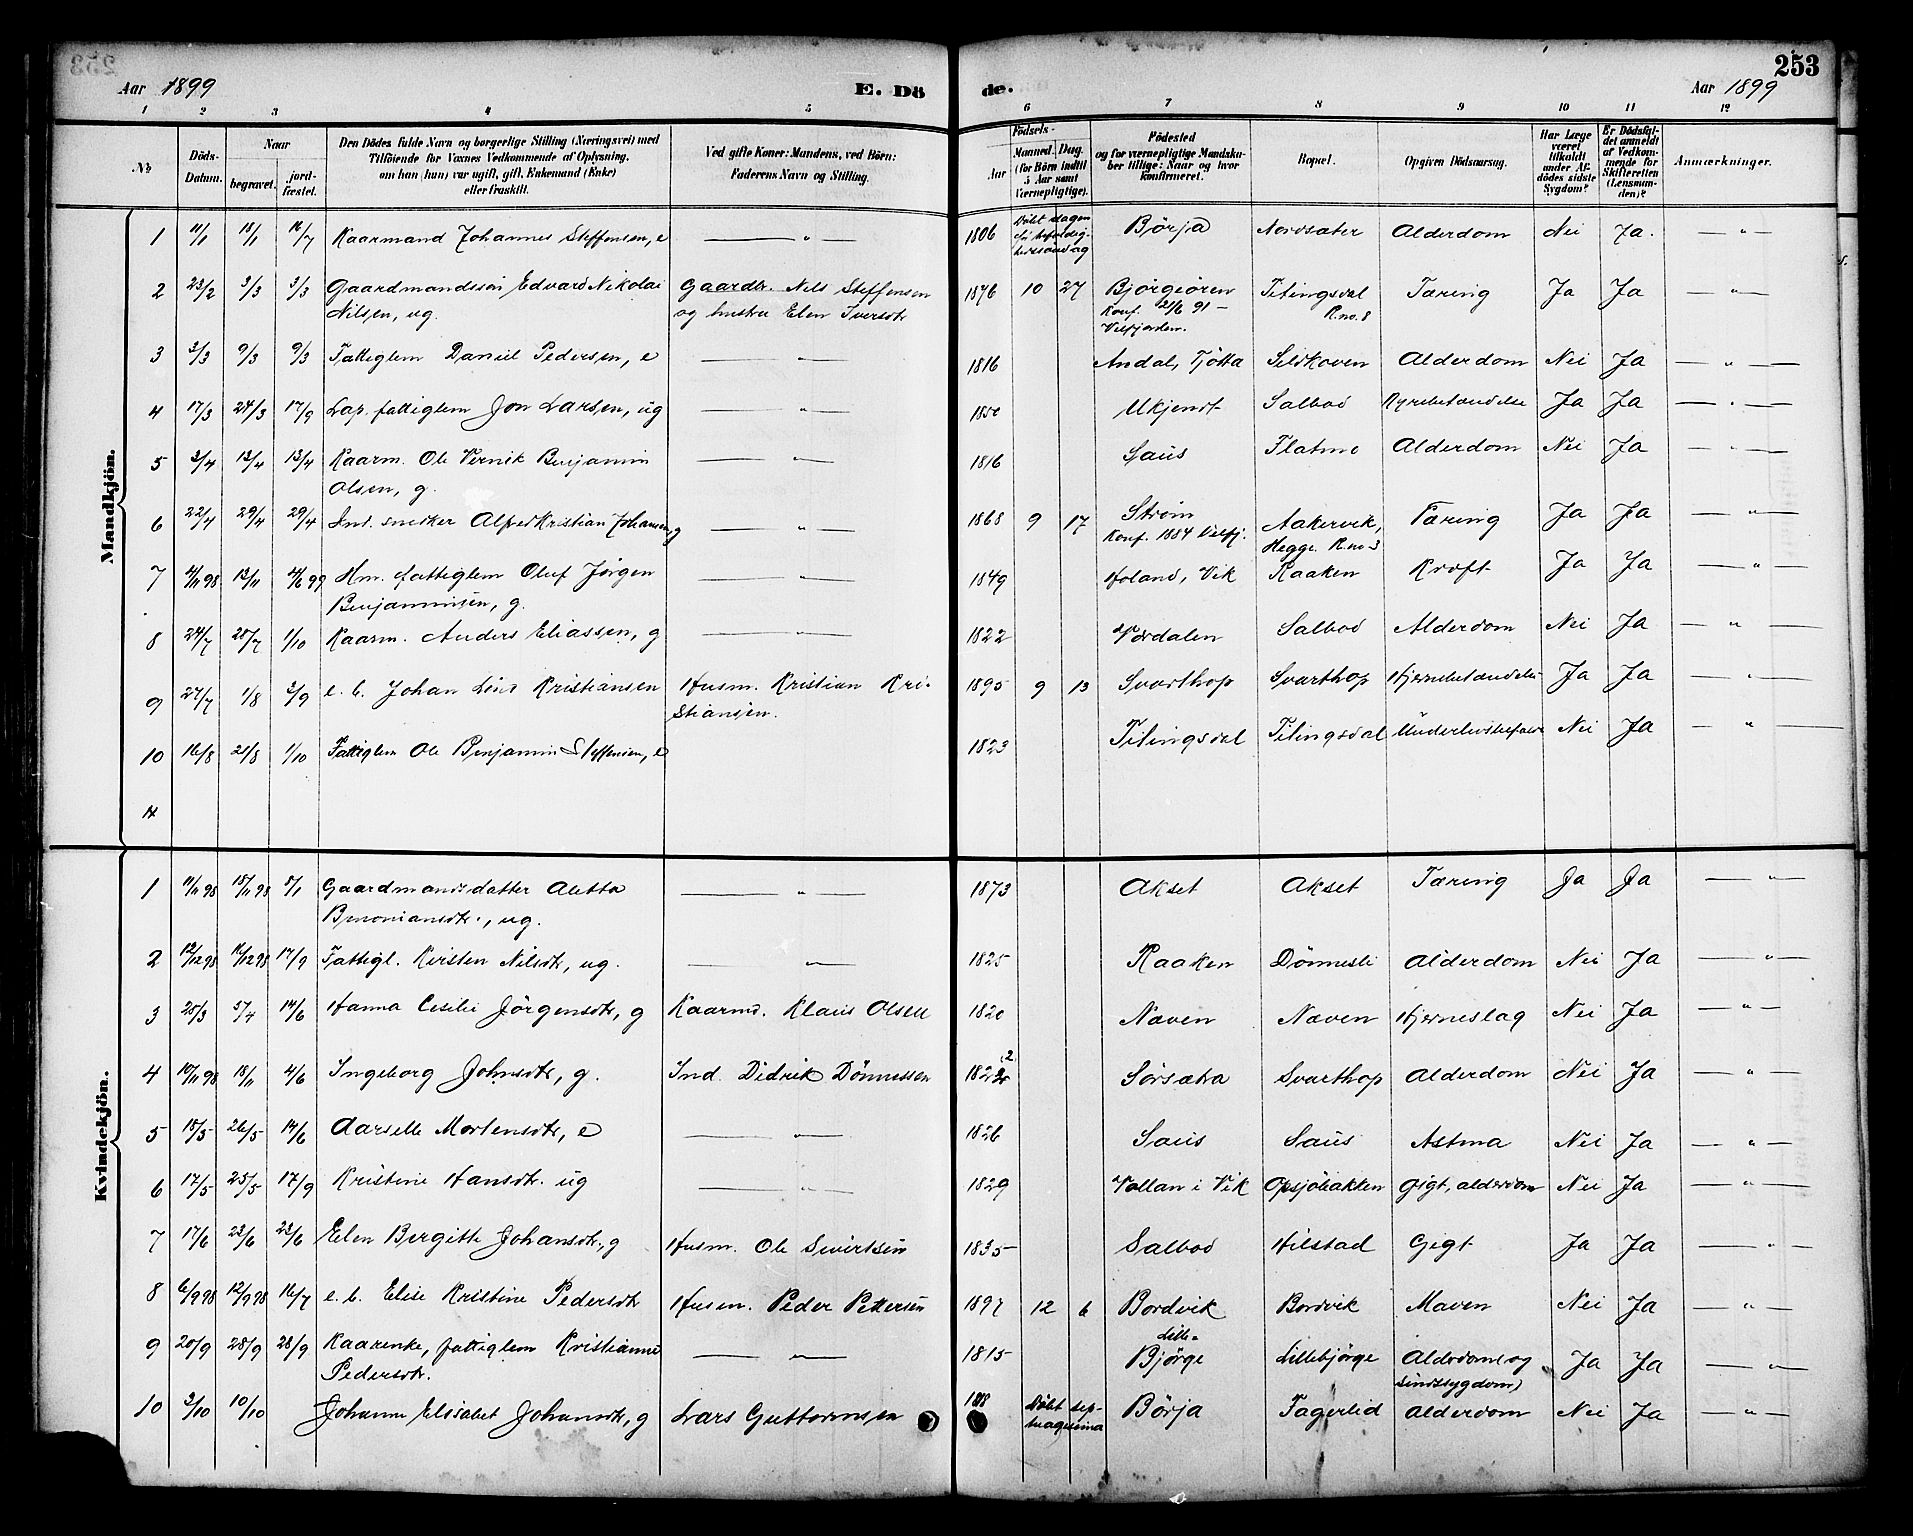 253
Aar 1899 E. Döde. Aar 1899
1 2 3 4 5 6 7 8 9 10 11 12
No
Döds-Datum.
Naar
begravet.
jord-fæstet.
Den Dödes fulde Navn og borgerlige Stilling (Næringsvei) med
Tilföiende for Voxnes Vedkommende af Oplysning,
om han (hun) var ugift, gift, Enkemand (Enke)
eller fraskilt.
Ved gifte Koner: Mandens, ved Börn:
Faderens Navn og Stilling.
Födsels-
Aar
Maaned. Dag.
(for Börn indtil
5 Aar samt
Værnepligtige).
Födested
og for værnepligtige Mandska-
ber tillige: Naar og hvor
konfirmeret.
Bopæl.
Opgiven Dödsaarsag.
Har Læge
været
tilkaldt
under Af-
dödes sidste
Sygdom?
Er Dödsfal-
det anmeldt
af Vedkom-
mende for
Skifteretten
(Lensman-
den)?
Anmærkninger.
Mandkjön.
1 11/1 18/1 16/7 Kaarmand Johannes Steffensen, e — " — 1806 Döbt dagen Børja Nordsæter Alderdom Nei Ja. — " —
2 23/2 3/3 3/3 Gaardmandssön Edvard Nikolai Gaardbr. Nels Steffensen 1876 10 27 Bjørgeören Titingsdal Tæring Ja Ja — " —
Nilsen, ug. og hustru Elen Iversdtr Konf. 21/6 91 – R.no. 8
Velfjorden.
3 3/3 9/3 9/3 Fattiglem Daniel Pedersen, e — " — 1816 Andal, Tjötta Sildkoven Alderdom Nei Ja — " —
4 17/3 24/3 17/9 Lap. fattiglem Jon Larsen, ug — " — 1850 Ukjendt Salbod Ja Ja — " —
5 3/4 13/4 13/4 Kaarm. Ole Vernik Benjamin — " — 1816 Saus Flatmo Alderdom Nei Ja — " —
Olsen, g.
6 22/4 29/4 29/4 Ind. snedker Alfred Kristian Johansen, g — " — 1868 9 17 Strøm Aakervik, Tæring Ja Ja — " —
Konf. 1884 Velfj. Hegge. R.no 3
7 4/11 98 13/11 4/6 99 Hm. fattiglem Oluf Jørgen — " — 1849 Holand, Vik Raaken Kræft Ja Ja — " —
Benjaminsen, g.
8 24/7 28/7 1/10 Kaarm. Anders Eliassen, g — " — 1822 Værdalen Salbod Alderdom Nei Ja — " —
9 27/7 1/8 3/9 e. b. Johan Kristiansen Husm. Kristian Kri- 1895 9 13 Svarthop Svarthop Hjernebetændelse Ja Ja — " —
stiansen.
10 16/8 21/8 1/10 Fattiglem Ole Benjamin Steffensen, e 1823 Titingsdal Titingsdal Nei Ja — " —
Kvindekjön.
1 11/11 98 18/11 98 8/1 Gaardmandsdatter Aletta — " — 1873 Akset Akset Tæring Ja Ja — " —
Benoniansdtr., ug.
2 12/12 98 16/12 98 17/9 Fattigl. Kirsten Nilsdtr, ug. — " — 1825 Raaken Dönnesli Alderdom Nei Ja — " —
3 28/3 5/4 14/6 Hanna Cesilie Jörgensdtr, g Kaarmd. Klaus Olsen 1820 Næven Næven Hjerneslag Nei Ja — " —
4 10/11 98 18/11 4/6 Ingeborg Johnsdtr, g. Ind. Didrik Dönnessen 1822 Sørsætra Svarthop Alderdom Nei Ja — " —
5 18/5 26/5 14/6 Aarselle Mortensdtr, e — " — 1826 Saus Saus Astma Nei Ja — " —
6 17/5 25/5 17/9 Kristine Hansdtr. ug — " — 1829 Vollan i Vik Opsjöbakken Gigt, alderdom Nei Ja — " —
7 17/6 23/6 23/6 Elen Bergitte Johansdtr., g Husm. Ole Sivertsen 1835 Salbod Hilstad Gigt Ja Ja — " —
8 6/9 98 12/9 98 16/7 e. b. Elise Kristine Pedersdtr Husm. Peder Pettersen 1897 12 6 Bordvik Bordvik Maven Nei Ja — " —
9 20/9 28/9 28/9 Kaarenke, fattiglem Kristianne — " — 1815 Lille- Lillebjörge Alderdom(og Ja Ja — " —
Pedersdtr. Bjørge Sindssygdom)
10 3/10 10/10 Johanne Elisabet Johansdtr, g Lars Guttormsen Döbt sep- Børja Fagerlid Alderdom Nei Ja
tuagesima